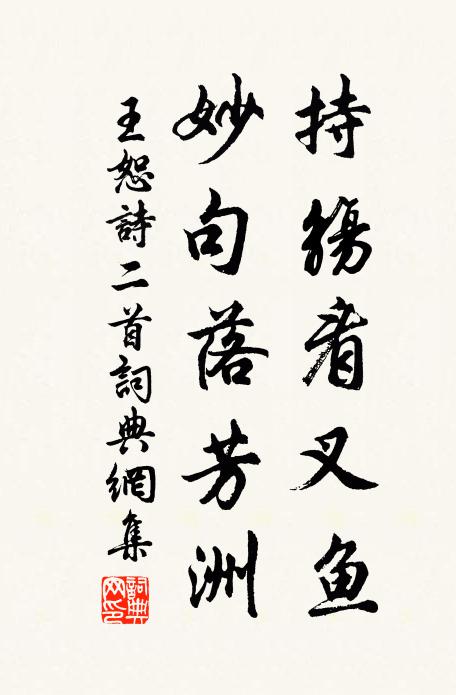 持觴看叉鱼
妙句落芳洲
王恕詩二首詞典網集
詞典網印